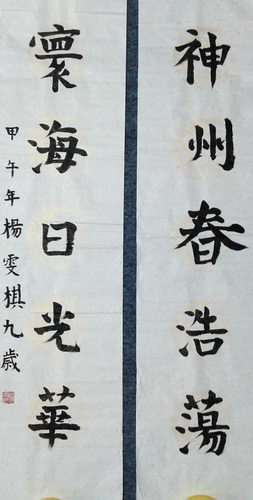 神州春浩蕩
寰海日光華
甲午年楊雯棋九歲